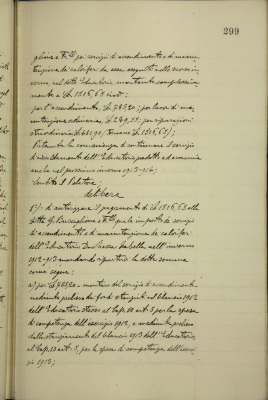 299
glione e F.lli pei servizi di accendimento e di manu-
tenzione dei caloriferi da essi eseguiti nello scorso in-
verno, nel detto Educatorio, montante complessiva-
mente a L. 1516,65 cioè:
per l'accendimento, L. 785,20; per lavori di ma-
nutenzione ordinaria, L. 249,55; per riparazioni
straordinarie L. 481,90, tornano L. 1516,65);
Ritenuta la convenienza di continuare il servizio
di riscaldamento dell'Educatorio predetto ad economia
anche nel prossimo inverno 1913-914;
Sentito il Relatore
delibera
1°) di autorizzare il pagamento di L. 1516,65 alla
ditta Buscaglione e F.lli per le imposte dei servizi
di accendimento e di manutenzione dei caloriferi
dell'Educatorio Duchessa Isabella nell'inverno
1912-913 mandando ripartirsi la detta somma
come segue:
a) per L. 785,20 - montare del servizio di accendimento -
mediante prelievo dai fondi stanziati al bilancio 1912
dell'Educatorio stesso al Cap. 10 art. 3, per la spesa
di competenza dell'esercizio 1912, e mediante prelievo
dallo stanziamento del bilancio 1913 dell'Educatorio,
al Cap. 10 art. 3, per la spesa di competenza dell'eserci-
zio 1913;